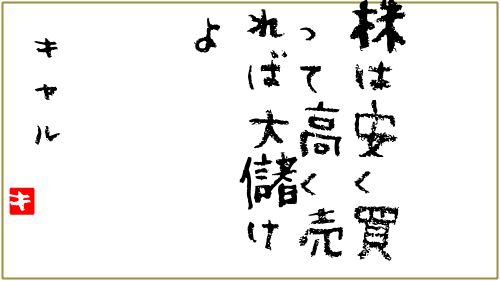 株は安く買
って高く売
れば大儲け
よ
キャル
キ